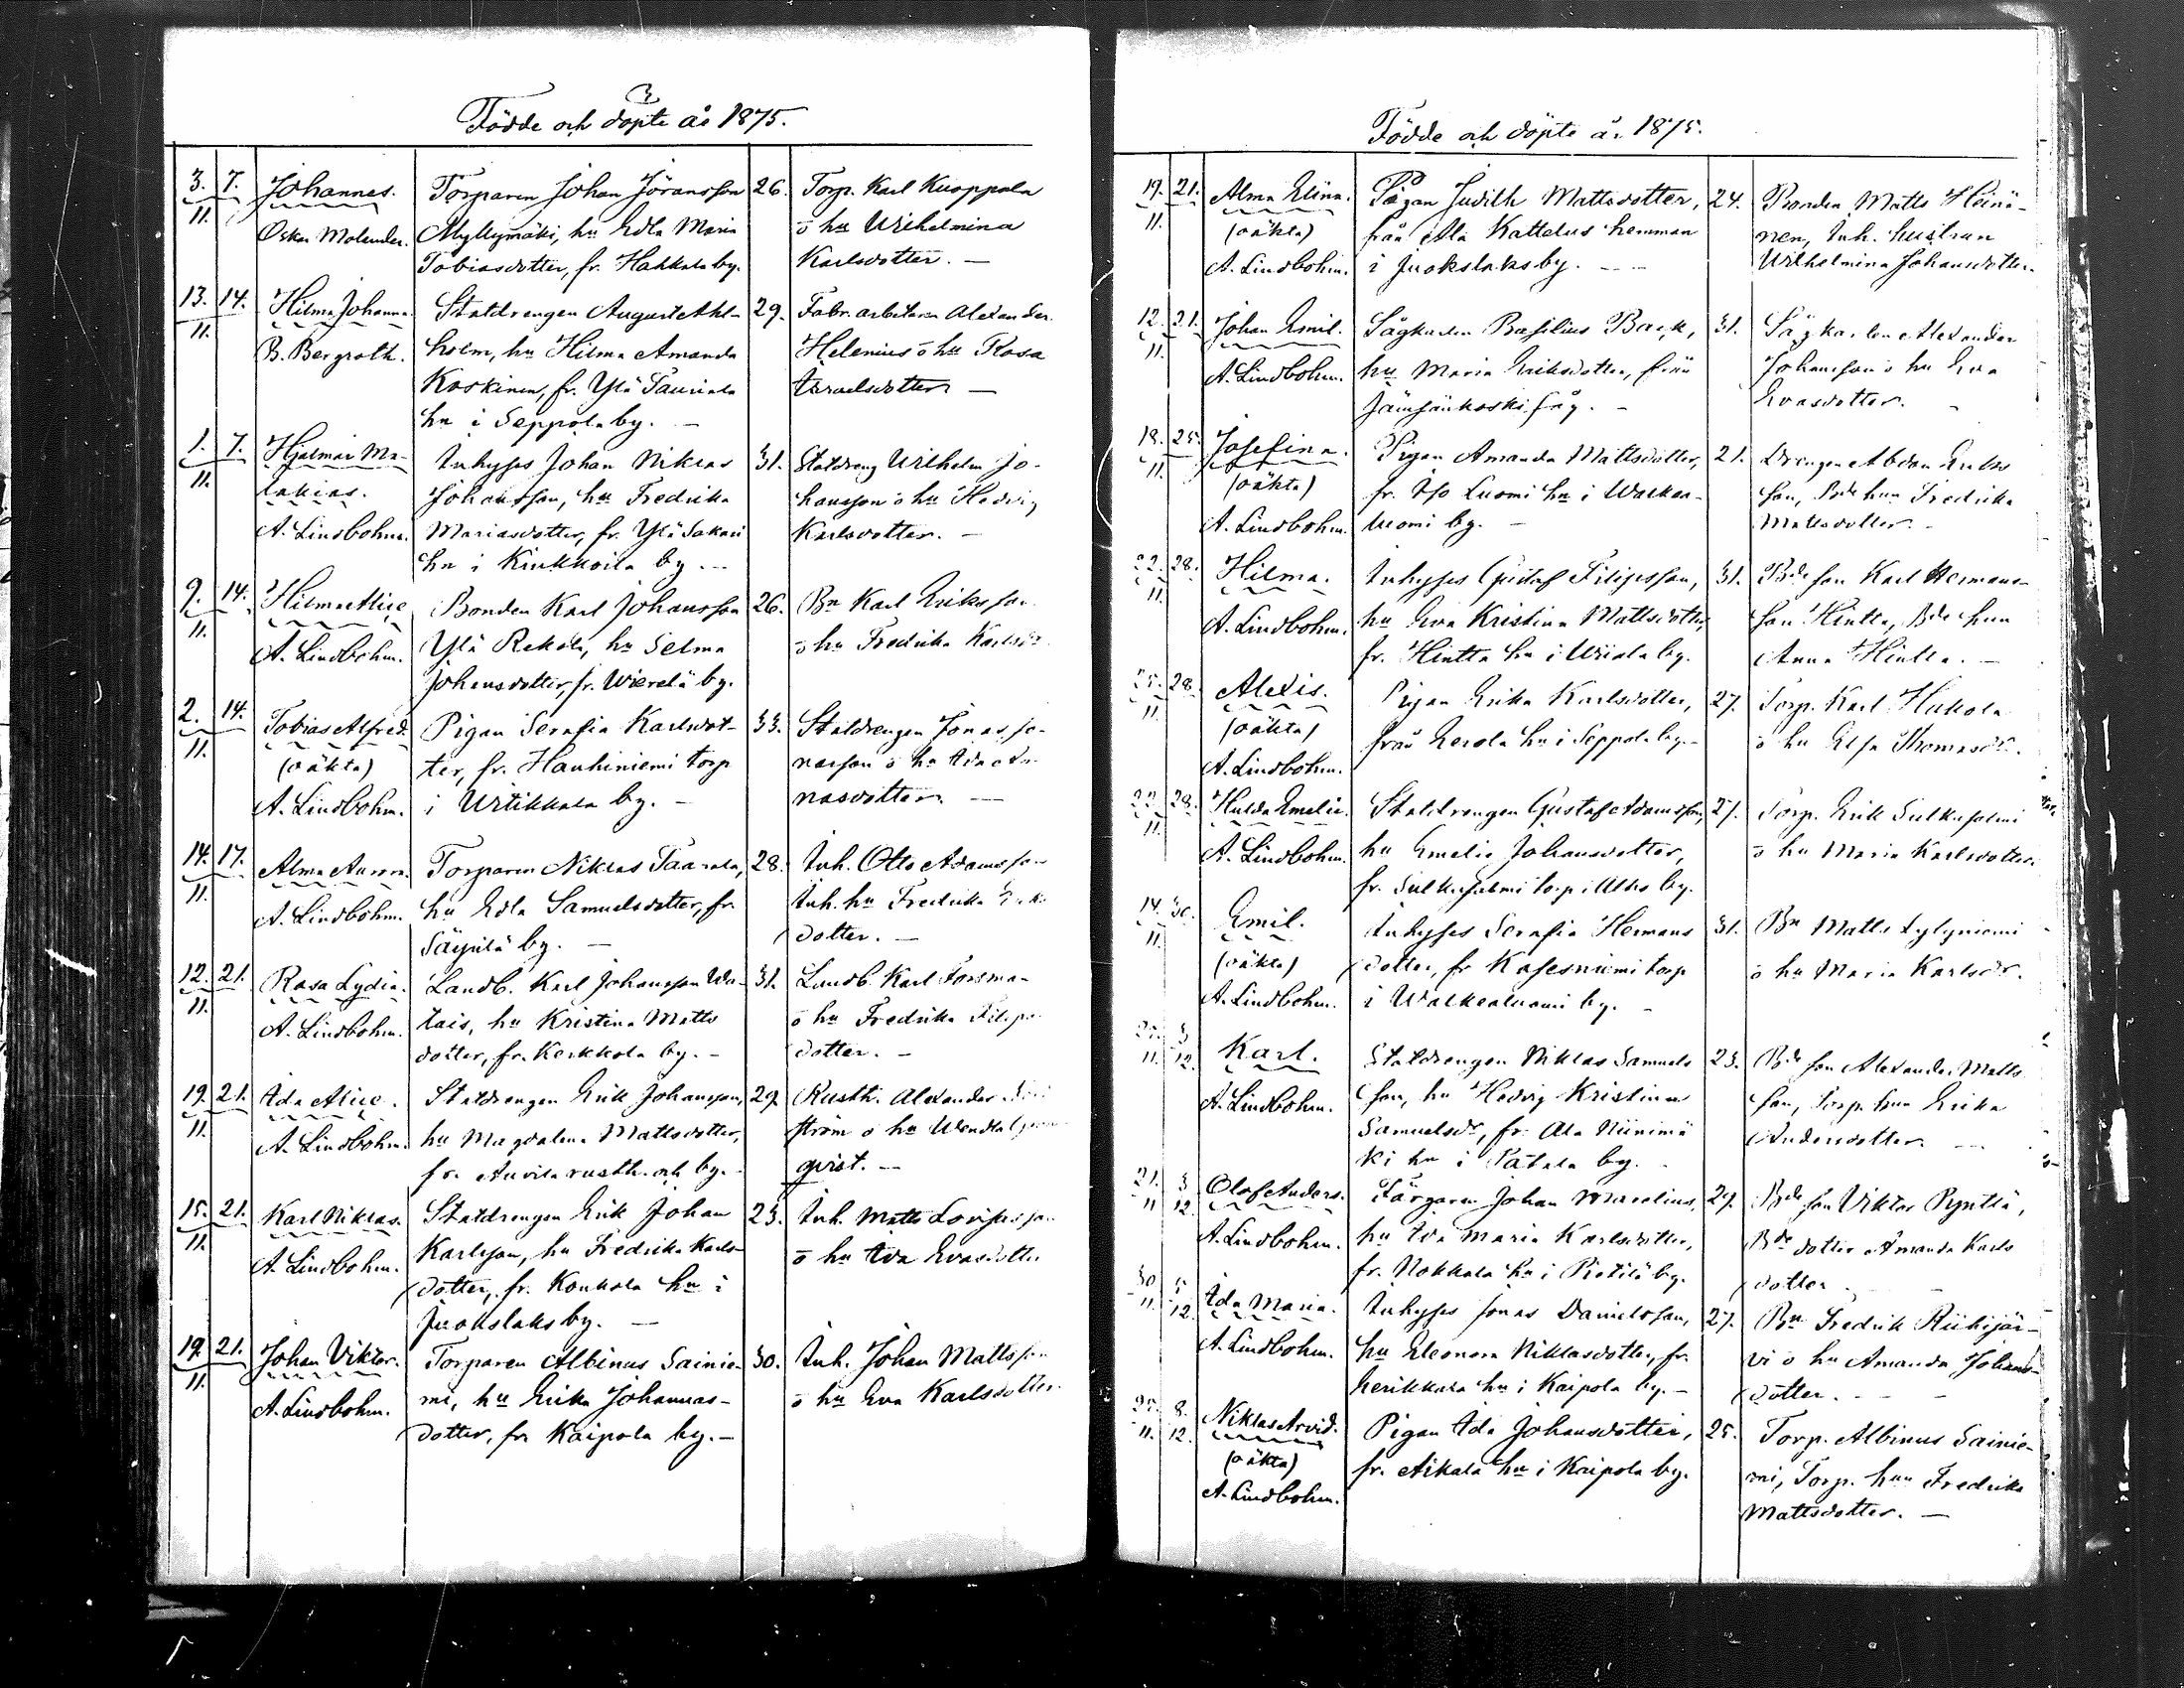 Födde och döpte år 1875.
3. 7. Johannes. Torparen Johan Jöransson 26. Torp. Karl Kuoppala
11. Oskar Molander. Myllymäki, hu Edla Maria o hu Wilhelmina
Tobiasdotter, fr. Hahkala by. Karlsdotter. —
13. 14. Hilma Johanna. Statdrengen August Ahl- 29. Fabr. arbetaren Alexander
11. B. Bergroth. holm, hu Hilma Amanda Helenius o hu Rosa
Koskinen, fr. Ylä Taurula Israelsdotter —
hn i Seppola by. —
1. 7. Hjalmar Ma- Inhyses Johan Niklas 31. Statdreng Wilhelm Jo-
11. lakias. Johansson, hu Fredrika hansson o hu Hedvig
A. Lindbohm. Mariasdotter, fr. Ylä Sakari Karlsdotter. —
hn i Kinkkoila by. —
9. 14. Hilma Alice Bonden Karl Johansson 26. Bn Karl Eriksson
11. A. Lindbohm. Ylä Rekola, hu Selma o hu Fredrika Karlsdr
Johansdotter, fr. Wierelä by.
2. 14. Tobias Alfred. Pigan Serafia Karlsdot- 33. Statdrengen Jonas Jo-
11. (oäkta) ter, fr. Hauhiniemi torp nasson o hu Ida
A. Lindbohm. i Witikkala by. — nasdotter. —
14. 17. Alma Aurora. Torparen Niklas Taarala, 28. Inh. Otto Adamsson
11. A. Lindbohm. hu Edla Samuelsdotter, fr. Inh. hu Fredrika Eriks
Säynilä by. — dotter. —
12. 21. Rosa Lydia. Landb. Karl Johansson Wa- 31. Landb. Karl Forsman
11. A. Lindbohm. tais, hu Kristina Matts o hu Fredrika Filips
dotter, fr. Kerkkola by. — dotter. —
19. 21. Ida Alice. Statdrengen Erik Johansson, 29. Rusth. Alexander
11. A. Lindbohm. hu Magdalena Mattsdotter, ström o hu Wendla
fr. Auvila rusth. och by. — qvist. —
15. 21. Karl Niklas. Statdrengen Erik Johan 23. Inh. Matts Lovisasson
11. A. Lindbohm. Karlsson, hu Fredrika Karls- o hu Eva Evasdotter
dotter, fr. Konkola hn i
Juokslaks by. —
19. 21. Johan Viktor. Torparen Albinus Sainie- 30. Inh. Johan Mattsson
11. A. Lindbohm. mi, hu Erika Johannas- o hu Eva Karlsdotter.
dotter, fr. Kaipola by. —
Födde och döpte år 1875.
19. 21. Alma Elina. Pigan Judith Mattsdotter, 24. Bonden Matts Heinä-
11. (oäkta) från Ala Kattelus hemman nen, Inh. hustrun
A. Lindbohm. i Juokslaks by. — Wilhelmina Johansdotter.
12. 21. Johan Emil. Sågkarlen Basilius Back, 31. Sågkarlen Alexander
11. A. Lindbohm. hu Maria Eriksdotter, från Johansson o hu Eva
Jämsänkoski såg. — Evasdotter. —
18. 25. Josefina. Pigan Amanda Mattsdotter, 21. Drengen Abdon Eriks
11. (oäkta) fr. Iso Luomi hn i Walkea- son, Bde hun Fredrika
A. Lindbohm. luomi by. — Mattsdotter. —
22. 28. Hilma. Inhyses Gustaf Filipsson, 31. Bde son Karl Hermans-
11. A. Lindbohm. hu Eva Kristina Mattsdotter, son Hintta, Bde hun
fr. Hintta hn i Wiiala by. Anna Hintta. —
25. 28. Alexis. Pigan Erika Karlsdotter, 27. Torp. Karl Hukola
11. (oäkta) från Eerola hn i Seppola by. — o hu Elsa Thomasdr.
A. Lindbohm.
22. 28. Hulda Emelie. Statdrengen Gustaf Adamsson, 27. Torp. Erik Sulkusalmi
11. A. Lindbohm. hu Emelie Johansdotter, o hu Maria Karlsdotter.
fr. Sulkusalmi torp i Alho by.
14. 30. Emil. Inhyses Serafia Hermans 31. Bn Matts Lylyniemi
11. (oäkta) dotter, fr. Kasesniemi torp o hu Maria Karlsdr.
A. Lindbohm. i Walkealuomi by. —
3
11. 12. Karl. Statdrengen Niklas Samuels 23. Bde son Alexander Matts
A. Lindbohm. son, hu Hedvig Kristina son, Torp. hun Erika
Samuelsdr, fr. Ala Niinimä Andersdotter. —
ki hn i Patala by. —
21. 3 Olof Anders. Färgaren Johan Marelius, 29. Bde son Viktor Pynttä,
11 12. A. Lindbohm. hu Eva Maria Karlsdotter, Bde dotter Amanda Karls
fr. Nokkala hn i Pietilä by. dotter —
30 5
11. 12. Ida Maria. Inhyses Jonas Danielsson, 27. Bn Fredrik Riihijär-
A. Lindbohm. hu Eleonora Niklasdotter, fr. vi o hu Amanda Johans-
Eerikkala hn i Kaipola by. — dotter. —
8. Niklas Arvid. Pigan Ida Johansdotter, 25. Torp. Albinus Sainie-
11. 12. (oäkta) fr. Aikala hn i Kaipola by. mi, Torp. hun Fredrika
A. Lindbohm. Mattsdotter. —